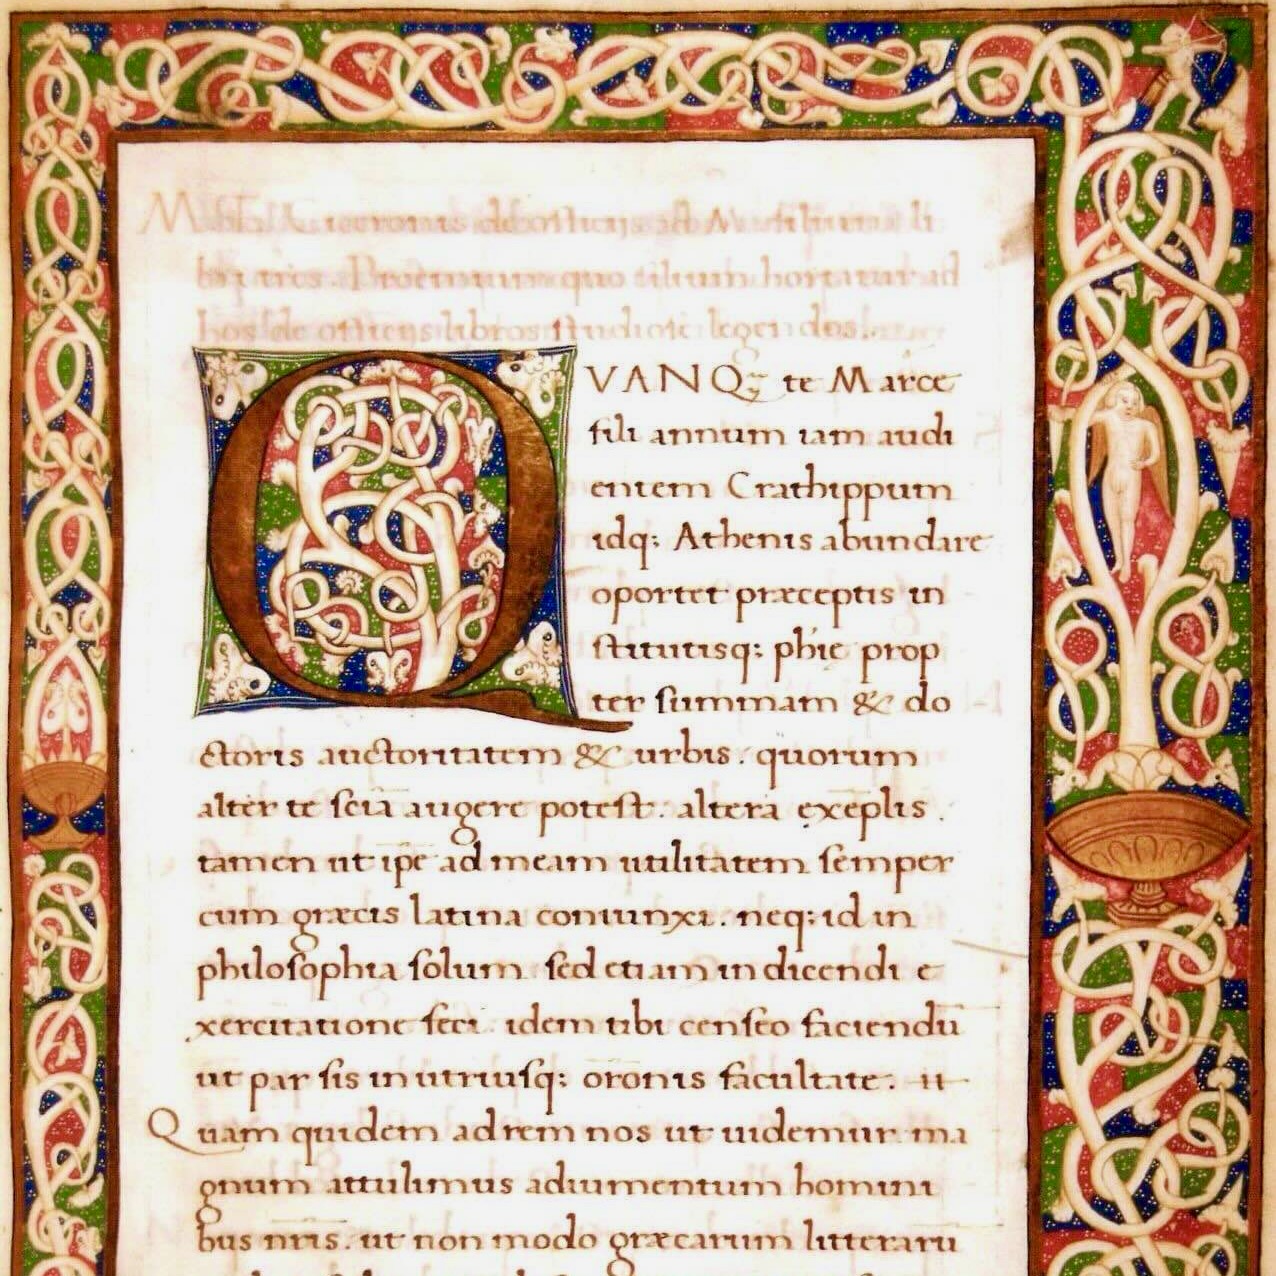 M. T. Ciceronis de officijs ad M. filium li
bri tres. Proemium quo filium hortatur ad
hos de officijs libros studiose legendos.
QVANQꝫ te Marce
fili annum iam audi
entem Crathippum
idq; Athenis abundare
oportet præceptis in
stitutisq; phie prop
ter summam & do
ctoris auctoritatem & urbis. quorum
alter te sciā augere potest. altera exēplis.
tamen ut ip̄e ad meam utilitatem semper
cum græcis latina coniunxi. neq; id in
philosophia solum sed etiam in dicendi e
xercitatione feci. idem tibi censeo faciendū
ut par sis in utriusq; orōnis facultate.
Quam quidem ad rem nos ut uidemur ma
gnum attulimus adiumentum homini
bus nr̄is. ut non modo græcarum litterarū